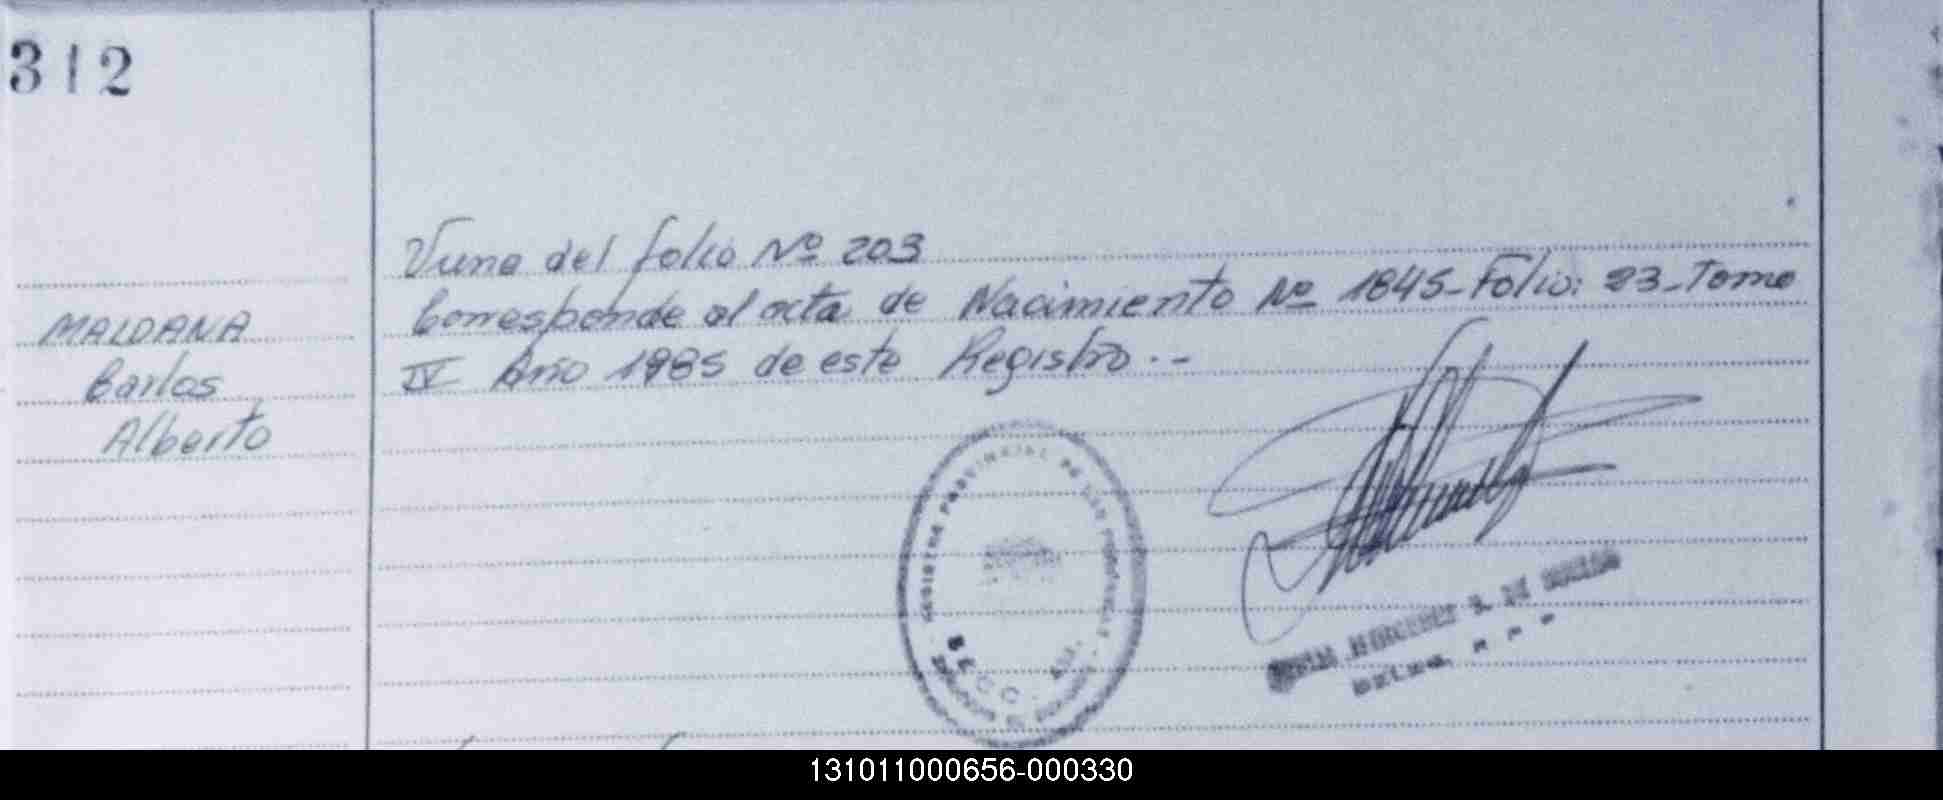 312
Viene del folio Nº 203
Corresponde al acta de Nacimiento Nº 1845-Folio: 23-Tomo
IV Año 1985 de este Registro.-
MALDANA
Carlos
Alberto
PROVINCIAL DE
MERCEDES
DE
131011000656-000330